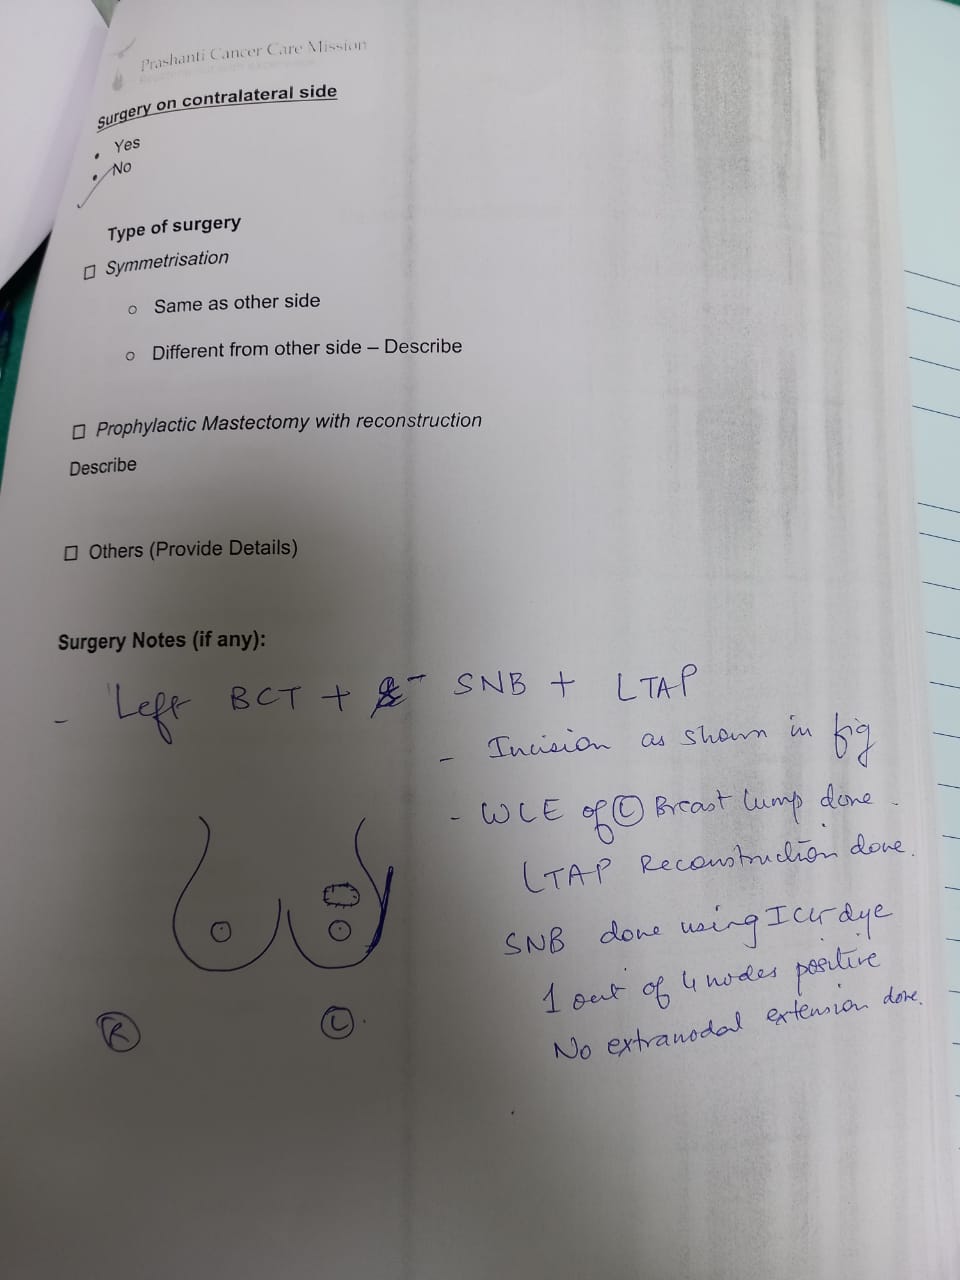 Prashanti Cancer Care Mission
Surgery on contralateral side
• Yes
• No
Type of surgery
□ Symmetrisation
○ Same as other side
○ Different from other side – Describe
□ Prophylactic Mastectomy with reconstruction
Describe
□ Others (Provide Details)
Surgery Notes (if any):
- Left BCT + SNB + LTAP
- Incision as shown in fig
- WLE of Ⓛ Breast lump done.
LTAP Reconstruction done.
SNB done using ICG dye
1 out of 4 nodes positive
No extranodal extension done.
Ⓡ Ⓛ